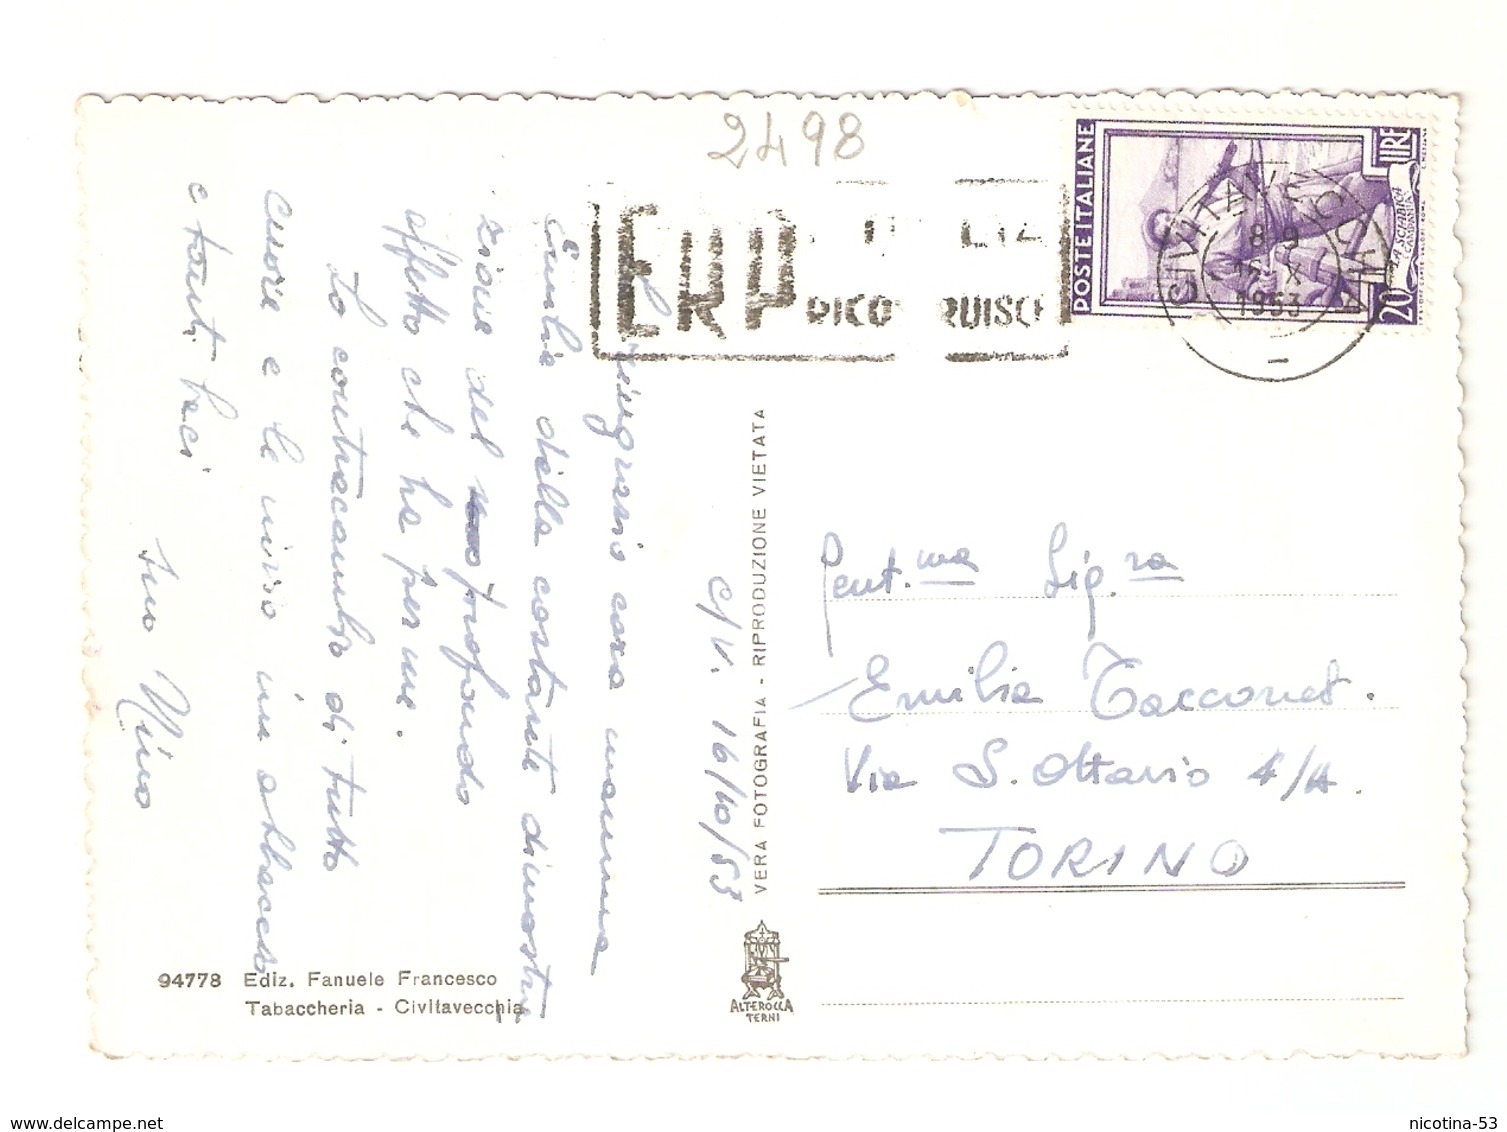 2498
POSTE ITALIANE
LIRE 20
LA SCIABICA
CAMPANIA
ERP
RICOSTRUISCE
CIVITAVECCHIA
8-9
16 X
1953
C/V. 16/10/53
ringrazio cara mamma
Emilia della costante dimostra
zione del profondo
affetto che ha per me.
Lo contraccambio di tutto
cuore e le invio un abbraccio
e tanti baci
suo Nino
Gent.ma Sig.ra
Emilia Tacconet.
Via S. Ottavio 4/A.
TORINO
VERA FOTOGRAFIA - RIPRODUZIONE VIETATA
ALTEROCCA
TERNI
94778 Ediz. Fanuele Francesco
Tabaccheria - Civitavecchia
delcampe.net
nicotina-53